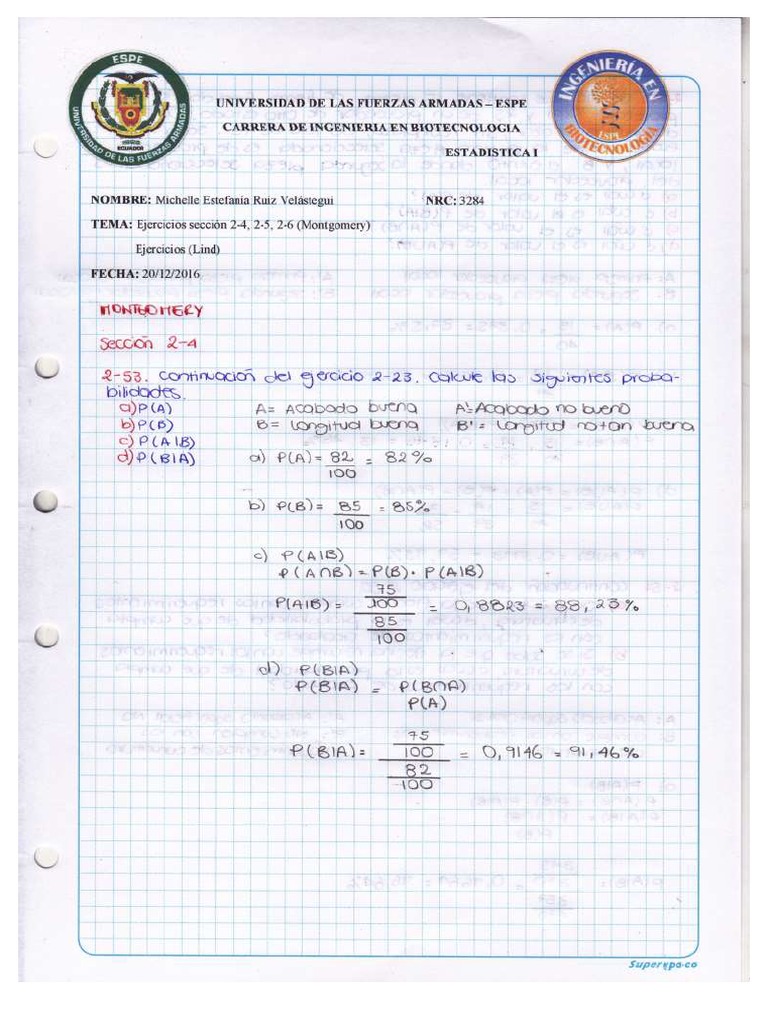 ESPE
UNIVERSIDAD DE LAS FUERZAS ARMADAS
ECUADOR
INGENIERÍA EN
BIOTECNOLOGÍA
ESPE
UNIVERSIDAD DE LAS FUERZAS ARMADAS – ESPE
CARRERA DE INGENIERIA EN BIOTECNOLOGIA
ESTADISTICA I
NOMBRE: Michelle Estefanía Ruiz Velástegui NRC: 3284
TEMA: Ejercicios sección 2-4, 2-5, 2-6 (Montgomery)
Ejercicios (Lind)
FECHA: 20/12/2016
MONTGOMERY
Sección 2-4
2-53. Continuación del ejercicio 2-23. Calcule las siguientes proba-
bilidades.
a) P(A) A= Acabado bueno A'= Acabado no bueno
b) P(B) B= Longitud buena B'= Longitud no tan buena
c) P(A|B)
d) P(B|A) a) P(A) = 82/100 = 82%
b) P(B) = 85/100 = 85%
c) P(A|B)
P(A∩B) = P(B) · P(A|B)
P(A|B) = 75/100 / 85/100 = 0,8823 = 88,23%
d) P(B|A)
P(B|A) = P(B∩A)
P(A)
P(B|A) = 75/100 / 82/100 = 0,9146 = 91,46%